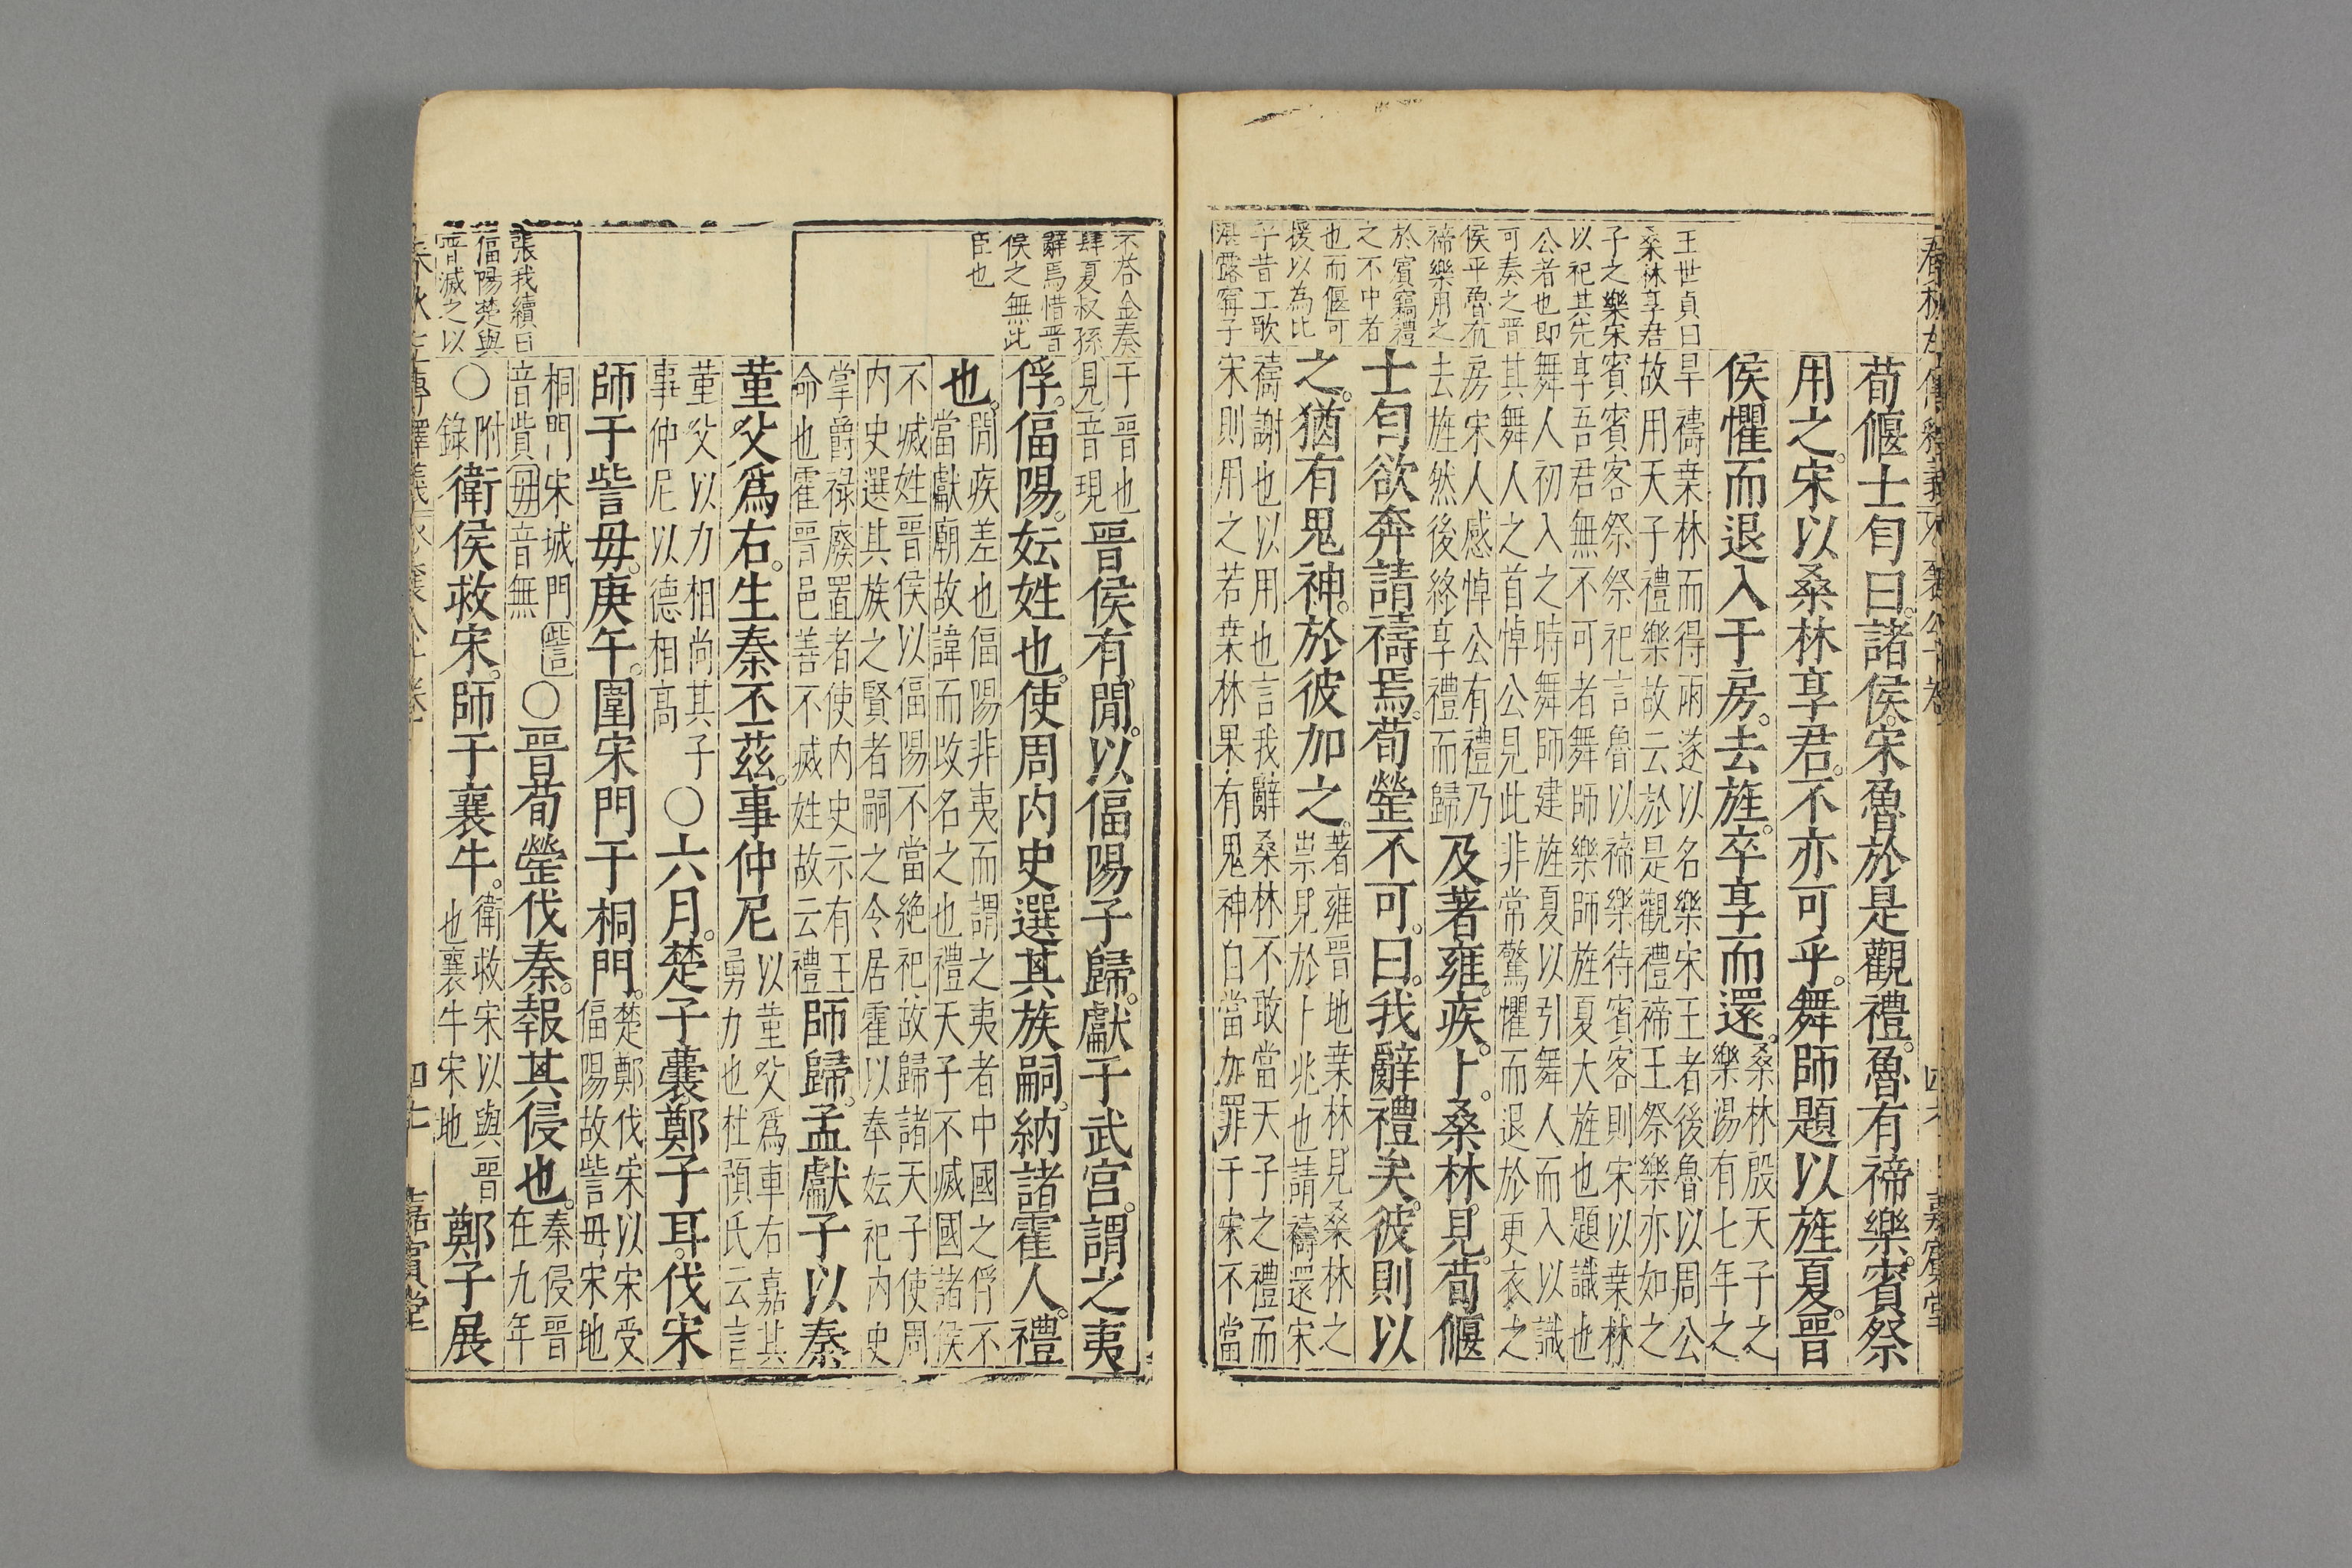 王世貞曰
桑林享君
子之樂宋
以祀其先
公者也即
可奏之晉
侯乎魯有
禘樂用之
於賓窮禮
之不中者
也而偃可
援以為比
乎昔工歌
湛露甯子
荀偃士匄曰諸侯宋魯於是觀禮魯有禘樂賓祭
用之宋以桑林享君不亦可乎舞師題以旌夏晉
侯懼而退入于房去旌卒享而還
桑林殷天子之
樂湯有七年之
旱禱桒林而得雨遂以名樂宋王者後魯以周公
故用天子禮樂故云於是觀禮禘王祭樂亦如之
賓賓客祭祭祀言魯以禘樂待賓客則宋以桒林
享吾君無不可者舞師樂師旌夏大旌也題識也
舞人初入之時舞師建旌夏以引舞人而入以識
其舞人之首悼公見此非常驚懼而退於更衣之
房宋人感悼公有禮乃
去旌然後終享禮而歸
及著雍疾卜桑林見荀偃
士匄欲奔請禱焉荀罃不可曰我辭禮矣彼則以
之猶有鬼神於彼加之
著雍晉地桒林見桑林之
祟見於卜兆也請禱還宋
禱謝也以用也言我辭桑林不敢當天子之禮而
宋則用之若桒林果有鬼神自當加罪于宋不當
不荅金奏
肆夏叔孫
辭焉惜晉
侯之無此
臣也
張我續曰
偪陽楚與
晉滅之以
于晉也
見音現
晉侯有閒以偪陽子歸獻于武宮謂之夷
俘偪陽妘姓也使周内史選其族嗣納諸霍人禮
也
閒疾差也偪陽非夷而謂之夷者中國之俘不
當獻廟故諱而改名之也禮天子不滅國諸侯
不滅姓晉侯以偪陽不當絶祀故歸諸天子使周
内史選其族之賢者嗣之令居霍以奉妘祀内史
掌爵祿廢置者使内史示有王
命也霍晉邑善不滅姓故云禮
師歸孟獻子以秦
堇父爲右生秦丕茲事仲尼
以堇父爲車右嘉其
勇力也杜預氏云言
堇父以力相尚其子
事仲尼以德相高
○六月楚子囊鄭子耳伐宋
師于訾毋庚午圍宋門于桐門
楚鄭伐宋以宋受
偪陽故訾毋宋地
桐門宋城門訾
音貲毋音無
○晉荀罃伐秦報其侵也
秦侵晉
在九年
○
附
錄
衛侯救宋師于襄牛
衛救宋以與晉
也襄牛宋地
鄭子展